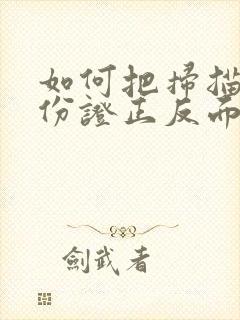 如何把掃描
份證正反而
劍武者